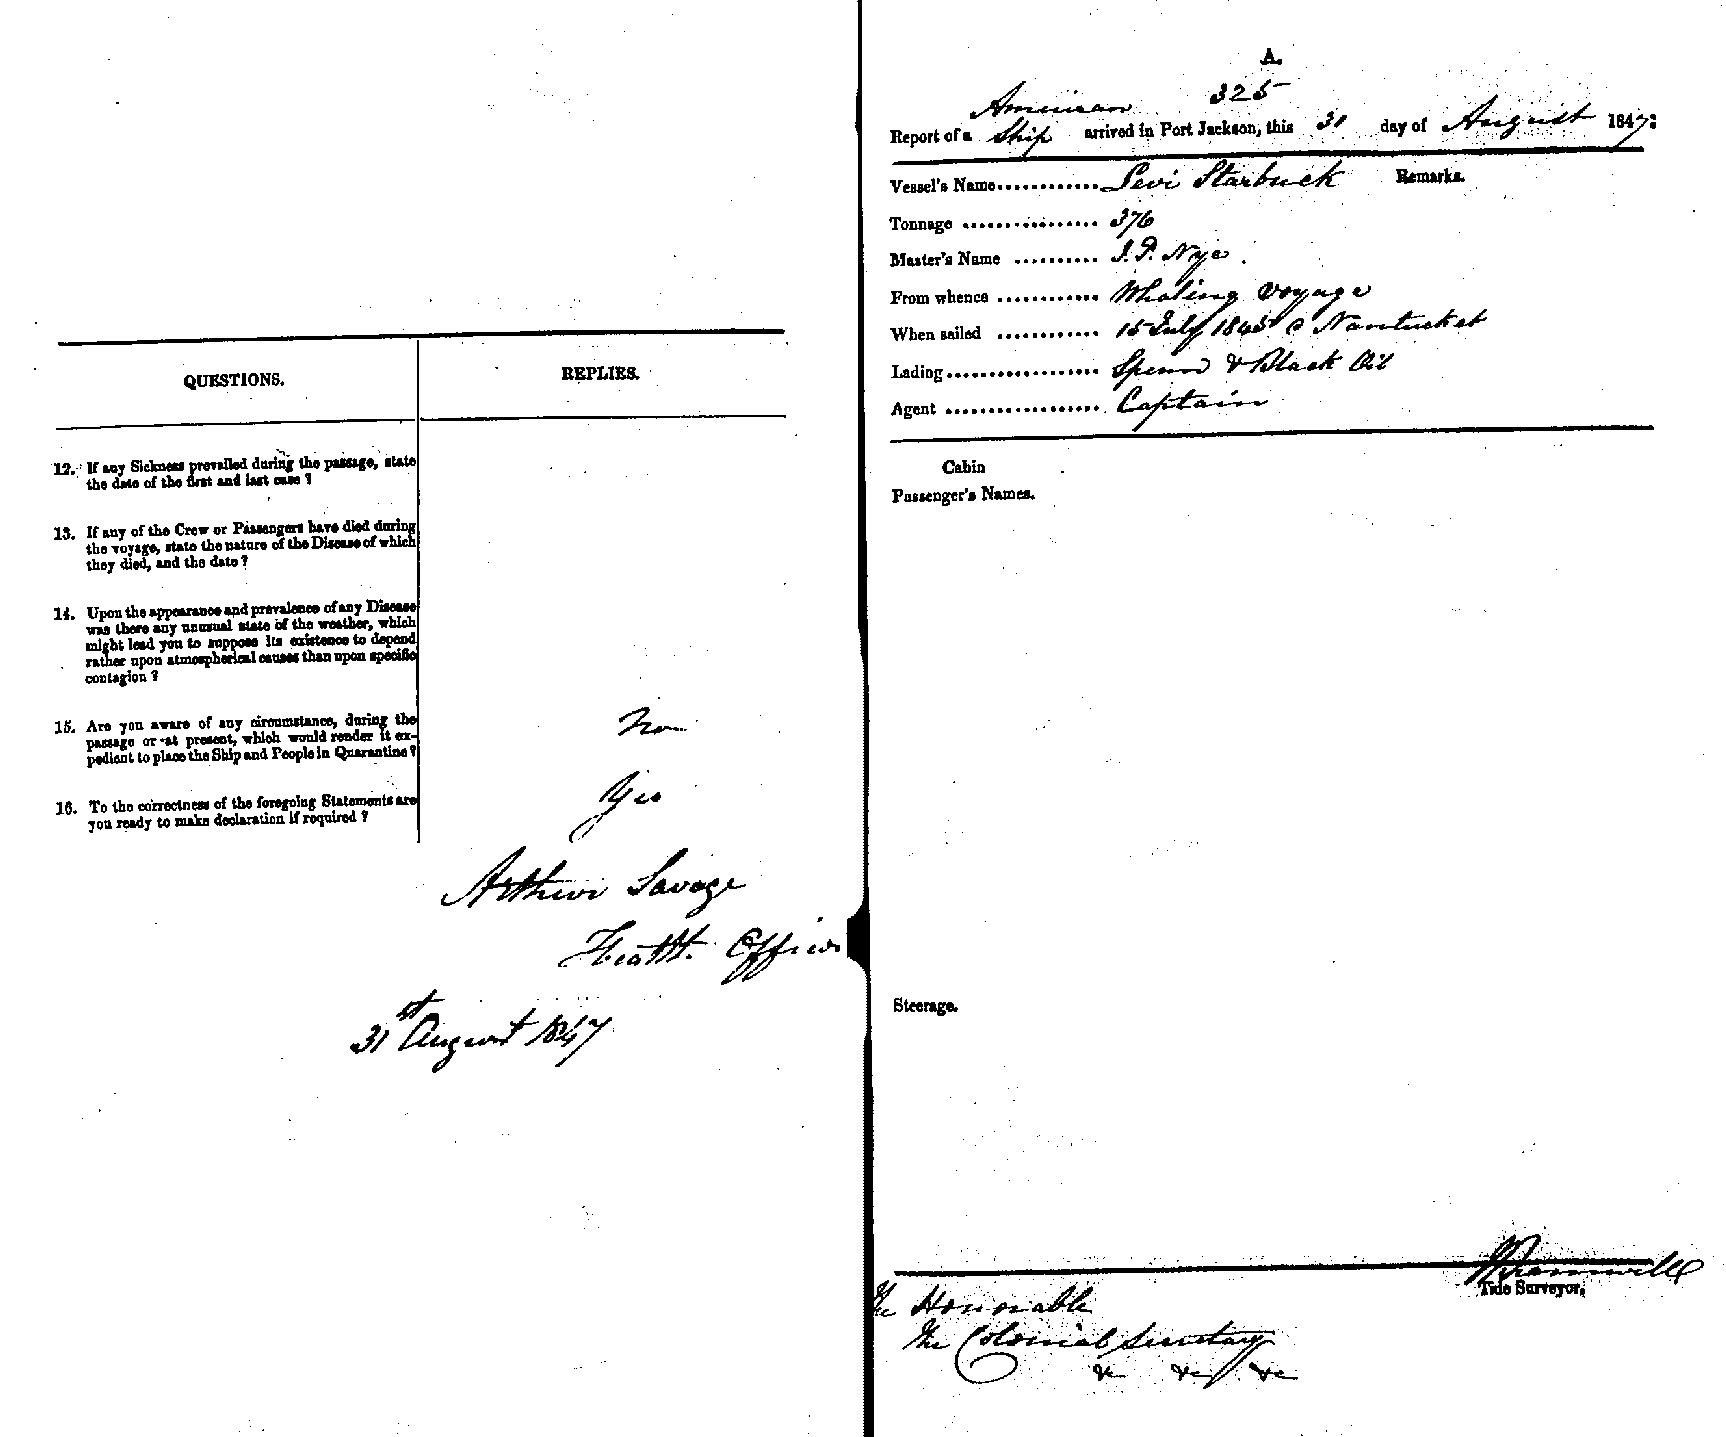 QUESTIONS.
REPLIES.
12. If any Sickness prevailed during the passage, state
the date of the first and last case ?
13. If any of the Crew or Passengers have died during
the voyage, state the nature of the Disease of which
they died, and the date ?
14. Upon the appearance and prevalence of any Disease
was there any unusual state of the weather, which
might lead you to suppose its existence to depend
rather upon atmospherical causes than upon specific
contagion ?
15. Are you aware of any circumstance, during the
passage or at present, which would render it ex-
pedient to place the Ship and People in Quarantine ?
No
16. To the correctness of the foregoing Statements are
you ready to make declaration if required ?
Yes
Arthur Savage
Health Officer
31st August 1847
A.
325
American
Report of a Ship arrived in Port Jackson, this 31 day of August 1847:
Vessel's Name............ Levi Starbuck Remarks.
Tonnage ................ 376
Master's Name .......... J. P. Nye
From whence ............ Whaling Voyage
When sailed ............ 15 July 1845 @ Nantucket
Lading.................. Sperm & Black Oil
Agent .................. Captain
Cabin
Passenger's Names.
Steerage.
Tide Surveyor.
The Honorable
The Colonial Secretary
&c &c &c